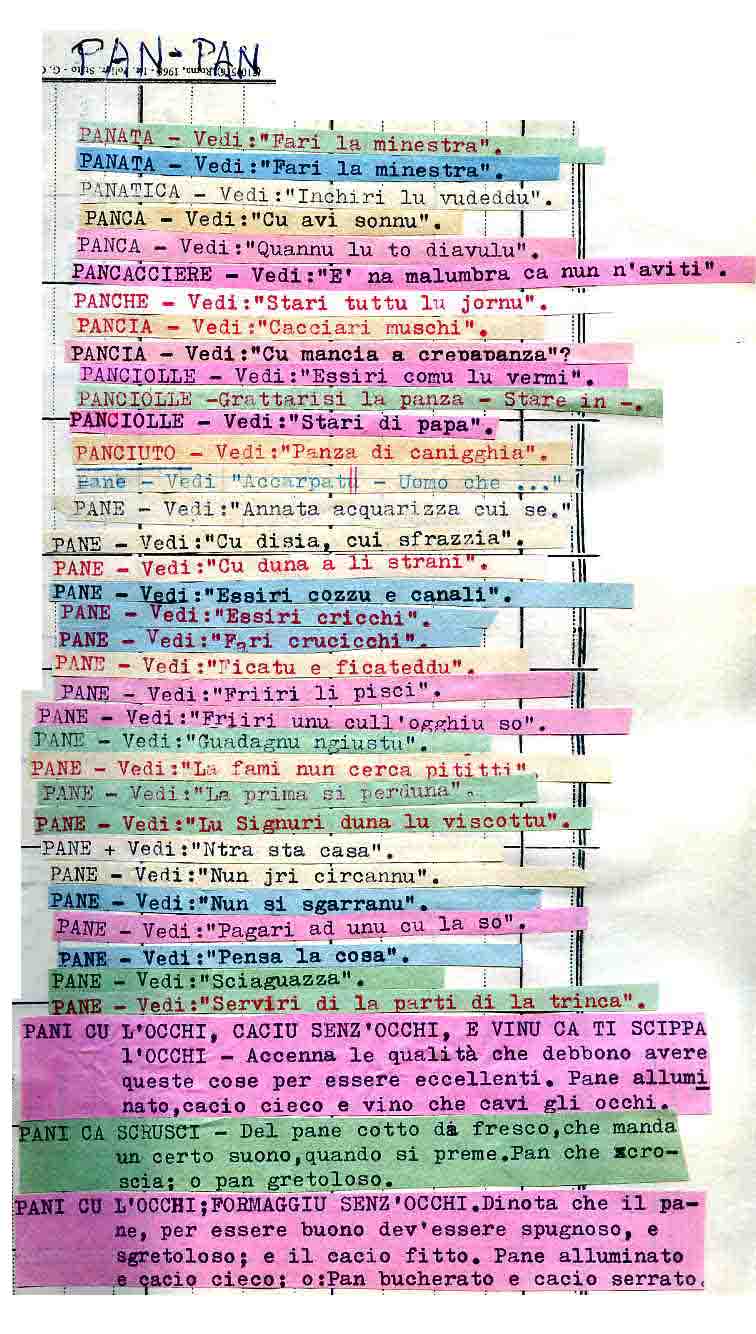 PAN-PAN
PANATA - Vedi:"Fari la minestra".
PANATA - Vedi:"Fari la minestra".
PANATICA - Vedi:"Inchiri lu vudeddu".
PANCA - Vedi:"Cu avi sonnu".
PANCA - Vedi:"Quannu lu to diavulu".
PANCACCIERE - Vedi:"E' na malumbra ca nun n'aviti".
PANCHE - Vedi:"Stari tuttu lu jornu".
PANCIA - Vedi:"Cacciari muschi".
PANCIA - Vedi:"Cu mancia a crepapanza"?
PANCIOLLE - Vedi:"Essiri comu lu vermi".
PANCIOLLE -Grattarisi la panza - Stare in -.
PANCIOLLE - Vedi:"Stari di papa".
PANCIUTO - Vedi:"Panza di canigghia".
Pane - Vedi "Accarpatu - Uomo che ..."
PANE - Vedi:"Annata acquarizza cui se."
PANE - Vedi:"Cu disia, cui sfrazzia".
PANE - Vedi:"Cu duna a li strani".
PANE - Vedi:"Essiri cozzu e canali".
PANE - Vedi:"Essiri cricchi".
PANE - Vedi:"Fari crucicchi".
PANE - Vedi:"Ficatu e ficateddu".
PANE - Vedi:"Friiri li pisci".
PANE - Vedi:"Friiri unu cull'ogghiu so".
PANE - Vedi:"Guadagnu ngiustu".
PANE - Vedi:"La fami nun cerca pititti".
PANE - Vedi:"La prima si perduna".
PANE - Vedi:"Lu Signuri duna lu viscottu".
PANE + Vedi:"Ntra sta casa".
PANE - Vedi:"Nun jri circannu".
PANE - Vedi:"Nun si sgarranu".
PANE - Vedi:"Pagari ad unu cu la so".
PANE - Vedi:"Pensa la cosa".
PANE - Vedi:"Sciaguazza".
PANE - Vedi:"Serviri di la parti di la trinca".
PANI CU L'OCCHI, CACIU SENZ'OCCHI, E VINU CA TI SCIPPA
l'OCCHI - Accenna le qualità che debbono avere
queste cose per essere eccellenti. Pane allumi
nato,cacio cieco e vino che cavi gli occhi.
PANI CA SCRUSCI - Del pane cotto da fresco,che manda
un certo suono,quando si preme.Pan che scro-
scia; o pan gretoloso.
PANI CU L'OCCHI;FORMAGGIU SENZ'OCCHI.Dinota che il pa-
ne, per essere buono dev'essere spugnoso, e
sgretoloso; e il cacio fitto. Pane alluminato
e cacio cieco; o:Pan bucherato e cacio serrato.